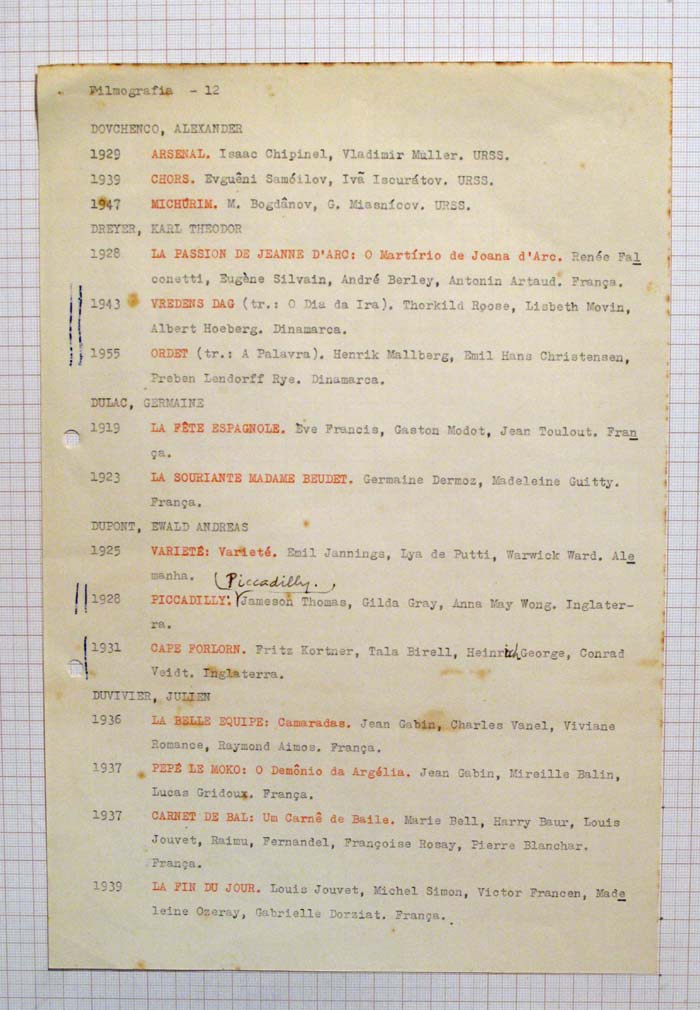 Filmografia - 12
DOVCHENCO, ALEXANDER
1929 ARSENAL. Isaac Chipinel, Vladimir Muller. URSS.
1939 CHORS. Evguêni Samóilov, Ivã Iscurátov. URSS.
1947 MICHÚRIM. M. Bogdânov, G. Miasnícov. URSS.
DREYER, KARL THEODOR
1928 LA PASSION DE JEANNE D'ARC: O Martírio de Joana d'Arc. Renée Fal
conetti, Eugène Silvain, André Berley, Antonin Artaud. França.
1943 VREDENS DAG (tr.: O Dia da Ira). Thorkild Roose, Lisbeth Movin,
Albert Hoeberg. Dinamarca.
1955 ORDET (tr.: A Palavra). Henrik Mallberg, Emil Hans Christensen,
Preben Lendorff Rye. Dinamarca.
DULAC, GERMAINE
1919 LA FÊTE ESPAGNOLE. Ève Francis, Gaston Modot, Jean Toulout. Fran
ça.
1923 LA SOURIANTE MADAME BEUDET. Germaine Dermoz, Madeleine Guitty.
França.
DUPONT, EWALD ANDREAS
1925 VARIETÉ: Varieté. Emil Jannings, Lya de Putti, Warwick Ward. Ale
manha.
Piccadilly.
1928 PICCADILLY: Jameson Thomas, Gilda Gray, Anna May Wong. Inglater-
ra.
1931 CAPE FORLORN. Fritz Kortner, Tala Birell, Heinrich George, Conrad
Veidt. Inglaterra.
DUVIVIER, JULIEN
1936 LA BELLE EQUIPE: Camaradas. Jean Gabin, Charles Vanel, Viviane
Romance, Raymond Aimos. França.
1937 PEPÉ LE MOKO: O Demônio da Argélia. Jean Gabin, Mireille Balin,
Lucas Gridoux. França.
1937 CARNET DE BAL: Um Carnê de Baile. Marie Bell, Harry Baur, Louis
Jouvet, Raimu, Fernandel, Françoise Rosay, Pierre Blanchar.
França.
1939 LA FIN DU JOUR. Louis Jouvet, Michel Simon, Victor Francen, Made
leine Ozeray, Gabrielle Dorziat. França.